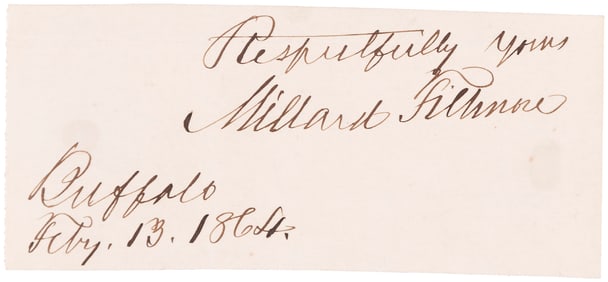 Respectfully yours
Millard Fillmore
Buffalo
Feby. 13. 1864.